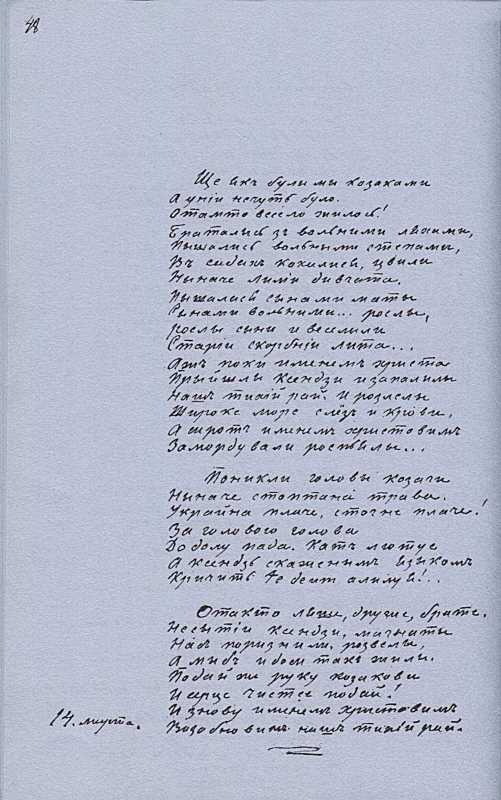 48
Ще якъ були ми козаками
А уніи нечуть було.
Отамто весело жилось!
Браталысь зъ вольними ляхами,
Пышались вольными степами,
Въ садахъ кохались, цвили
Ныначе лиліи дивчата.
Пышалася сынами маты
Сынами вольними... рослы,
рослы сыни и веселили
Старіи скорбніи лита...
Ажъ поки именемъ христа
Прыйшлы ксендзи изапалилы
Нашъ тихій рай. И розлелы
Широке море слёзъ и крови,
А сиротъ именемъ христовимъ
Замордували роспьялы...
Поникли головы козачи
Ныначе стоптана трава.
Украйна плаче, стогне плаче!
За головою голова
До долу пада. Катъ лютує
А ксендзъ скаженимъ языкомъ
Кричить Те деит алилуя!..
Отакто ляше, друже, брате.
Неситіи ксендзи, магнаты
Насъ поризнили, розвелы,
А мыбъ идоси такъ жилы.
Подай же руку козакови
И серце чистее подай!
И знову именемъ христовимъ
Возобновимъ нашъ тихій рай.
14. марта.